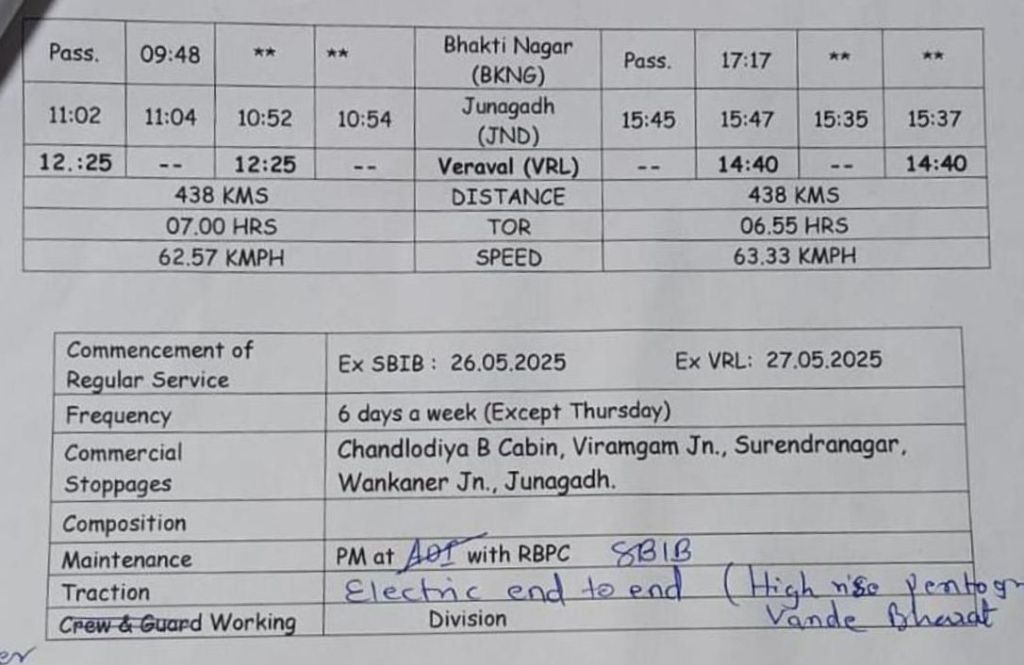 Pass. 09:48 ** ** Bhakti Nagar (BKNG) Pass. 17:17 ** **
11:02 11:04 10:52 10:54 Junagadh (JND) 15:45 15:47 15:35 15:37
12.:25 -- 12:25 -- Veraval (VRL) -- 14:40 -- 14:40
438 KMS DISTANCE 438 KMS
07.00 HRS TOR 06.55 HRS
62.57 KMPH SPEED 63.33 KMPH
Commencement of Regular Service Ex SBIB : 26.05.2025 Ex VRL: 27.05.2025
Frequency 6 days a week (Except Thursday)
Commercial Stoppages Chandlodiya B Cabin, Viramgam Jn., Surendranagar,
Wankaner Jn., Junagadh.
Composition
Maintenance PM at ADI with RBPC SBIB
Traction Electric end to end (High rise Pentogr
Vande Bharat
Crew & Guard Working Division